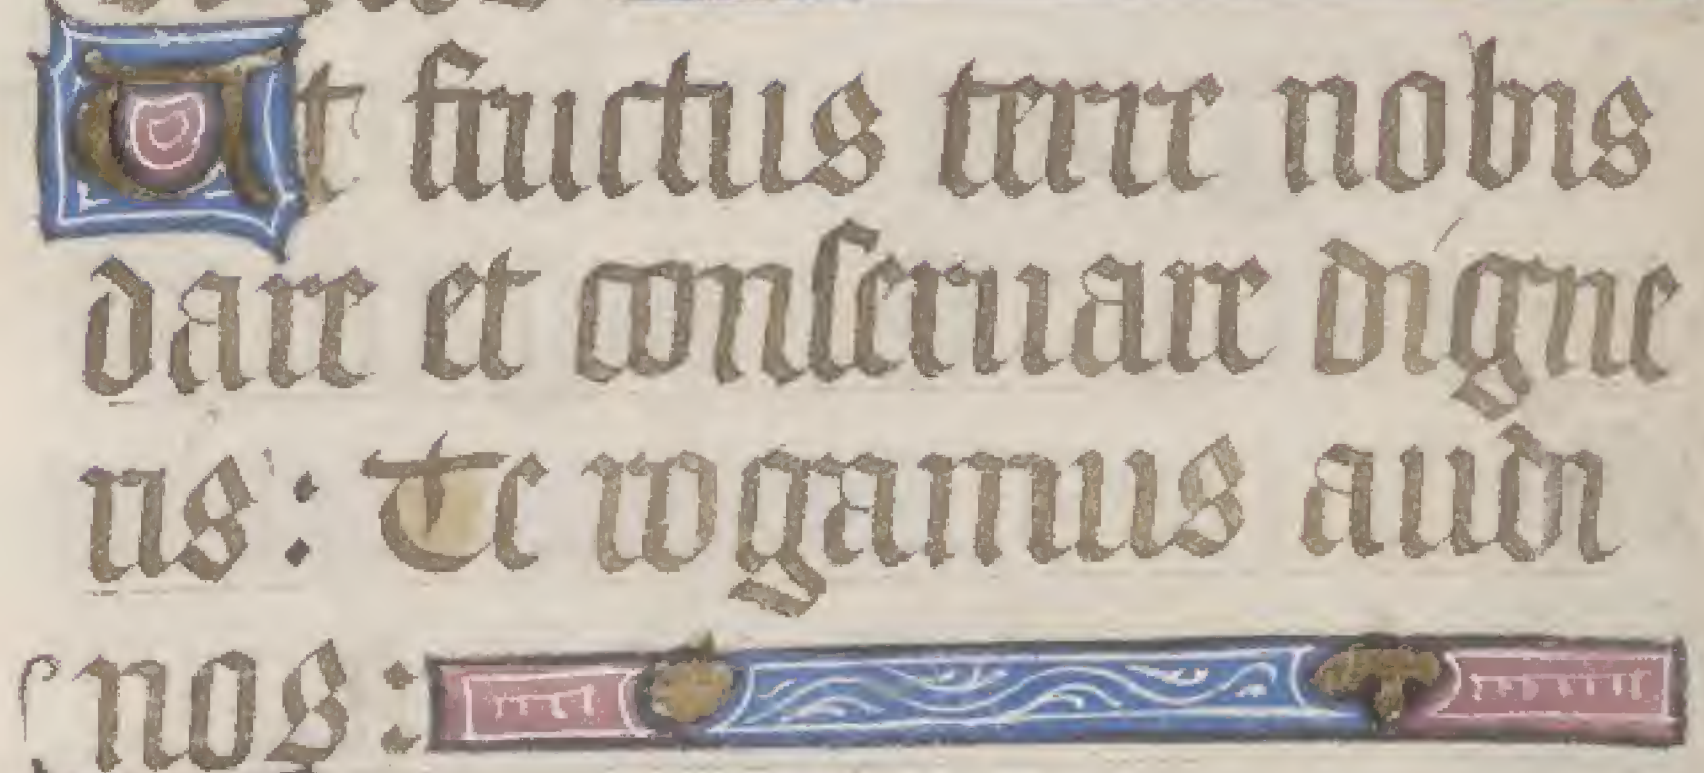 Ut fructus terre nobis
dare et conseruare digne
ris: Te rogamus audi
nos: